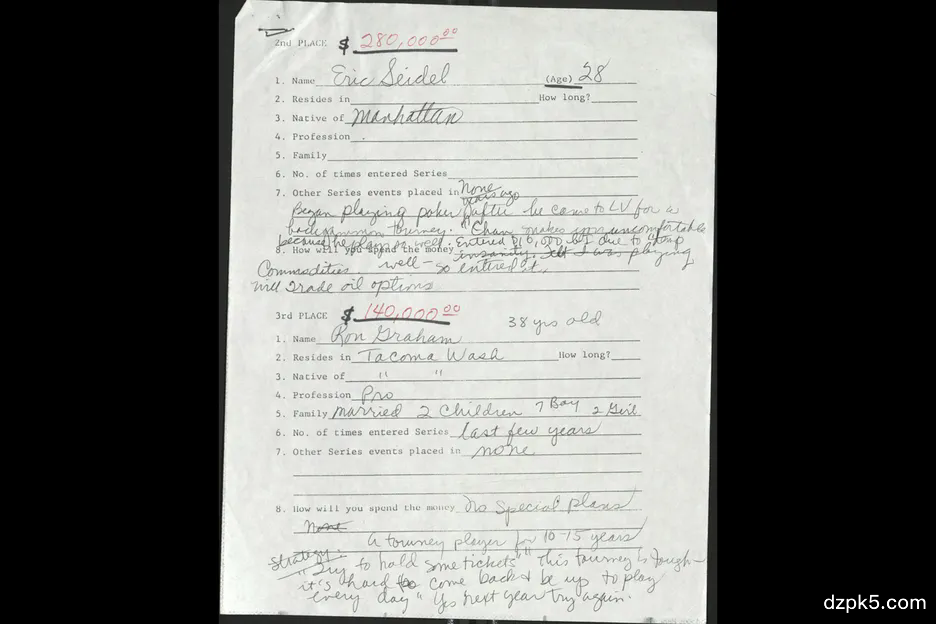 2nd PLACE $ 280,000.00
1. Name Eric Seidel (Age) 28
2. Resides in How long?
3. Native of Manhattan
4. Profession
5. Family
6. No. of times entered Series
7. Other Series events placed in None
years ago
Began playing poker after he came to LV for a
backgammon tourney. "Chan makes you uncomfortable
because he plays so well. Entered $10,000 due to "temp
8. How will you spend the money insanity. I was playing
Commodities. well - so entered it.
will Trade oil options
3rd PLACE $ 140,000.00 38 yrs old
1. Name Ron Graham
2. Resides in Tacoma Wash How long?
3. Native of " "
4. Profession Pro
5. Family Married 2 Children 7 Boy 2 Girl
6. No. of times entered Series last few years
7. Other Series events placed in none
8. How will you spend the money No Special plans
None
A tourney player for 10-15 years
Strategy:
"Try to hold some tickets" "this tourney is tough-
it's hard to come back & be up to play
every day" Yes next year try again.
dzpk5.com